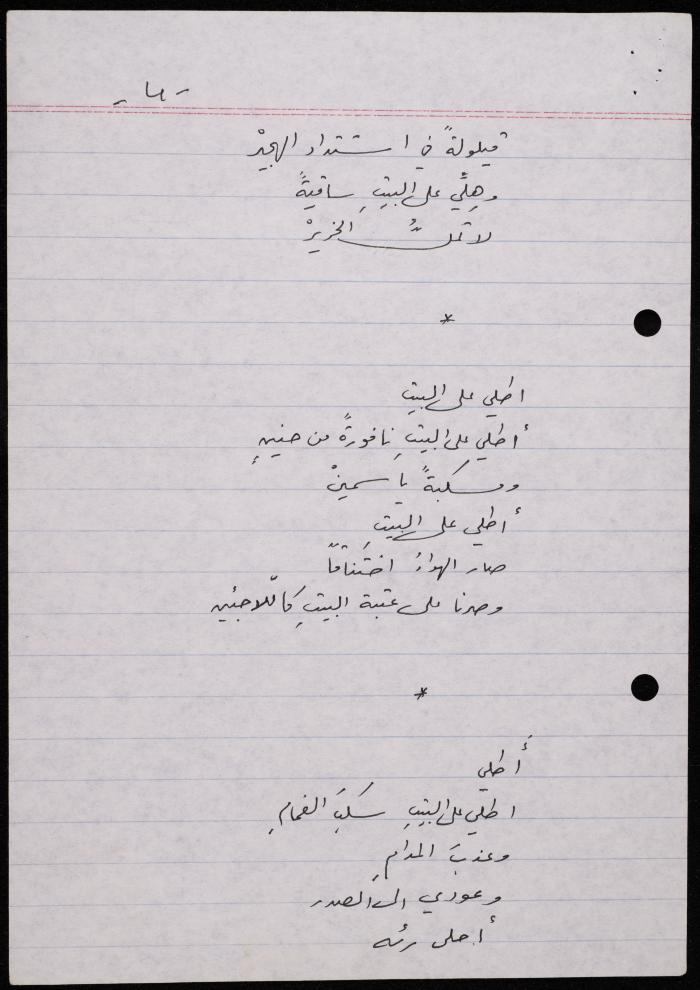 قيلولةً في اشتداد الهجيرْ
وهِلّي على البيتِ ساقيةً
لا تملُّ الخريرْ
*
اطلي على البيتِ
أطلي على البيتِ نافورةً من حنينٍ
ومسكبةً ياسمينْ
أطلي على البيتِ
صار الهواءُ اختناقاً
وصرنا على عتبة البيتِ كاللاجئين
*
أطلي
اطلي على البيتِ سكبَ الغمامِ
وعذبَ المدامِ
وعودي الى الصدر
أحلى رئه